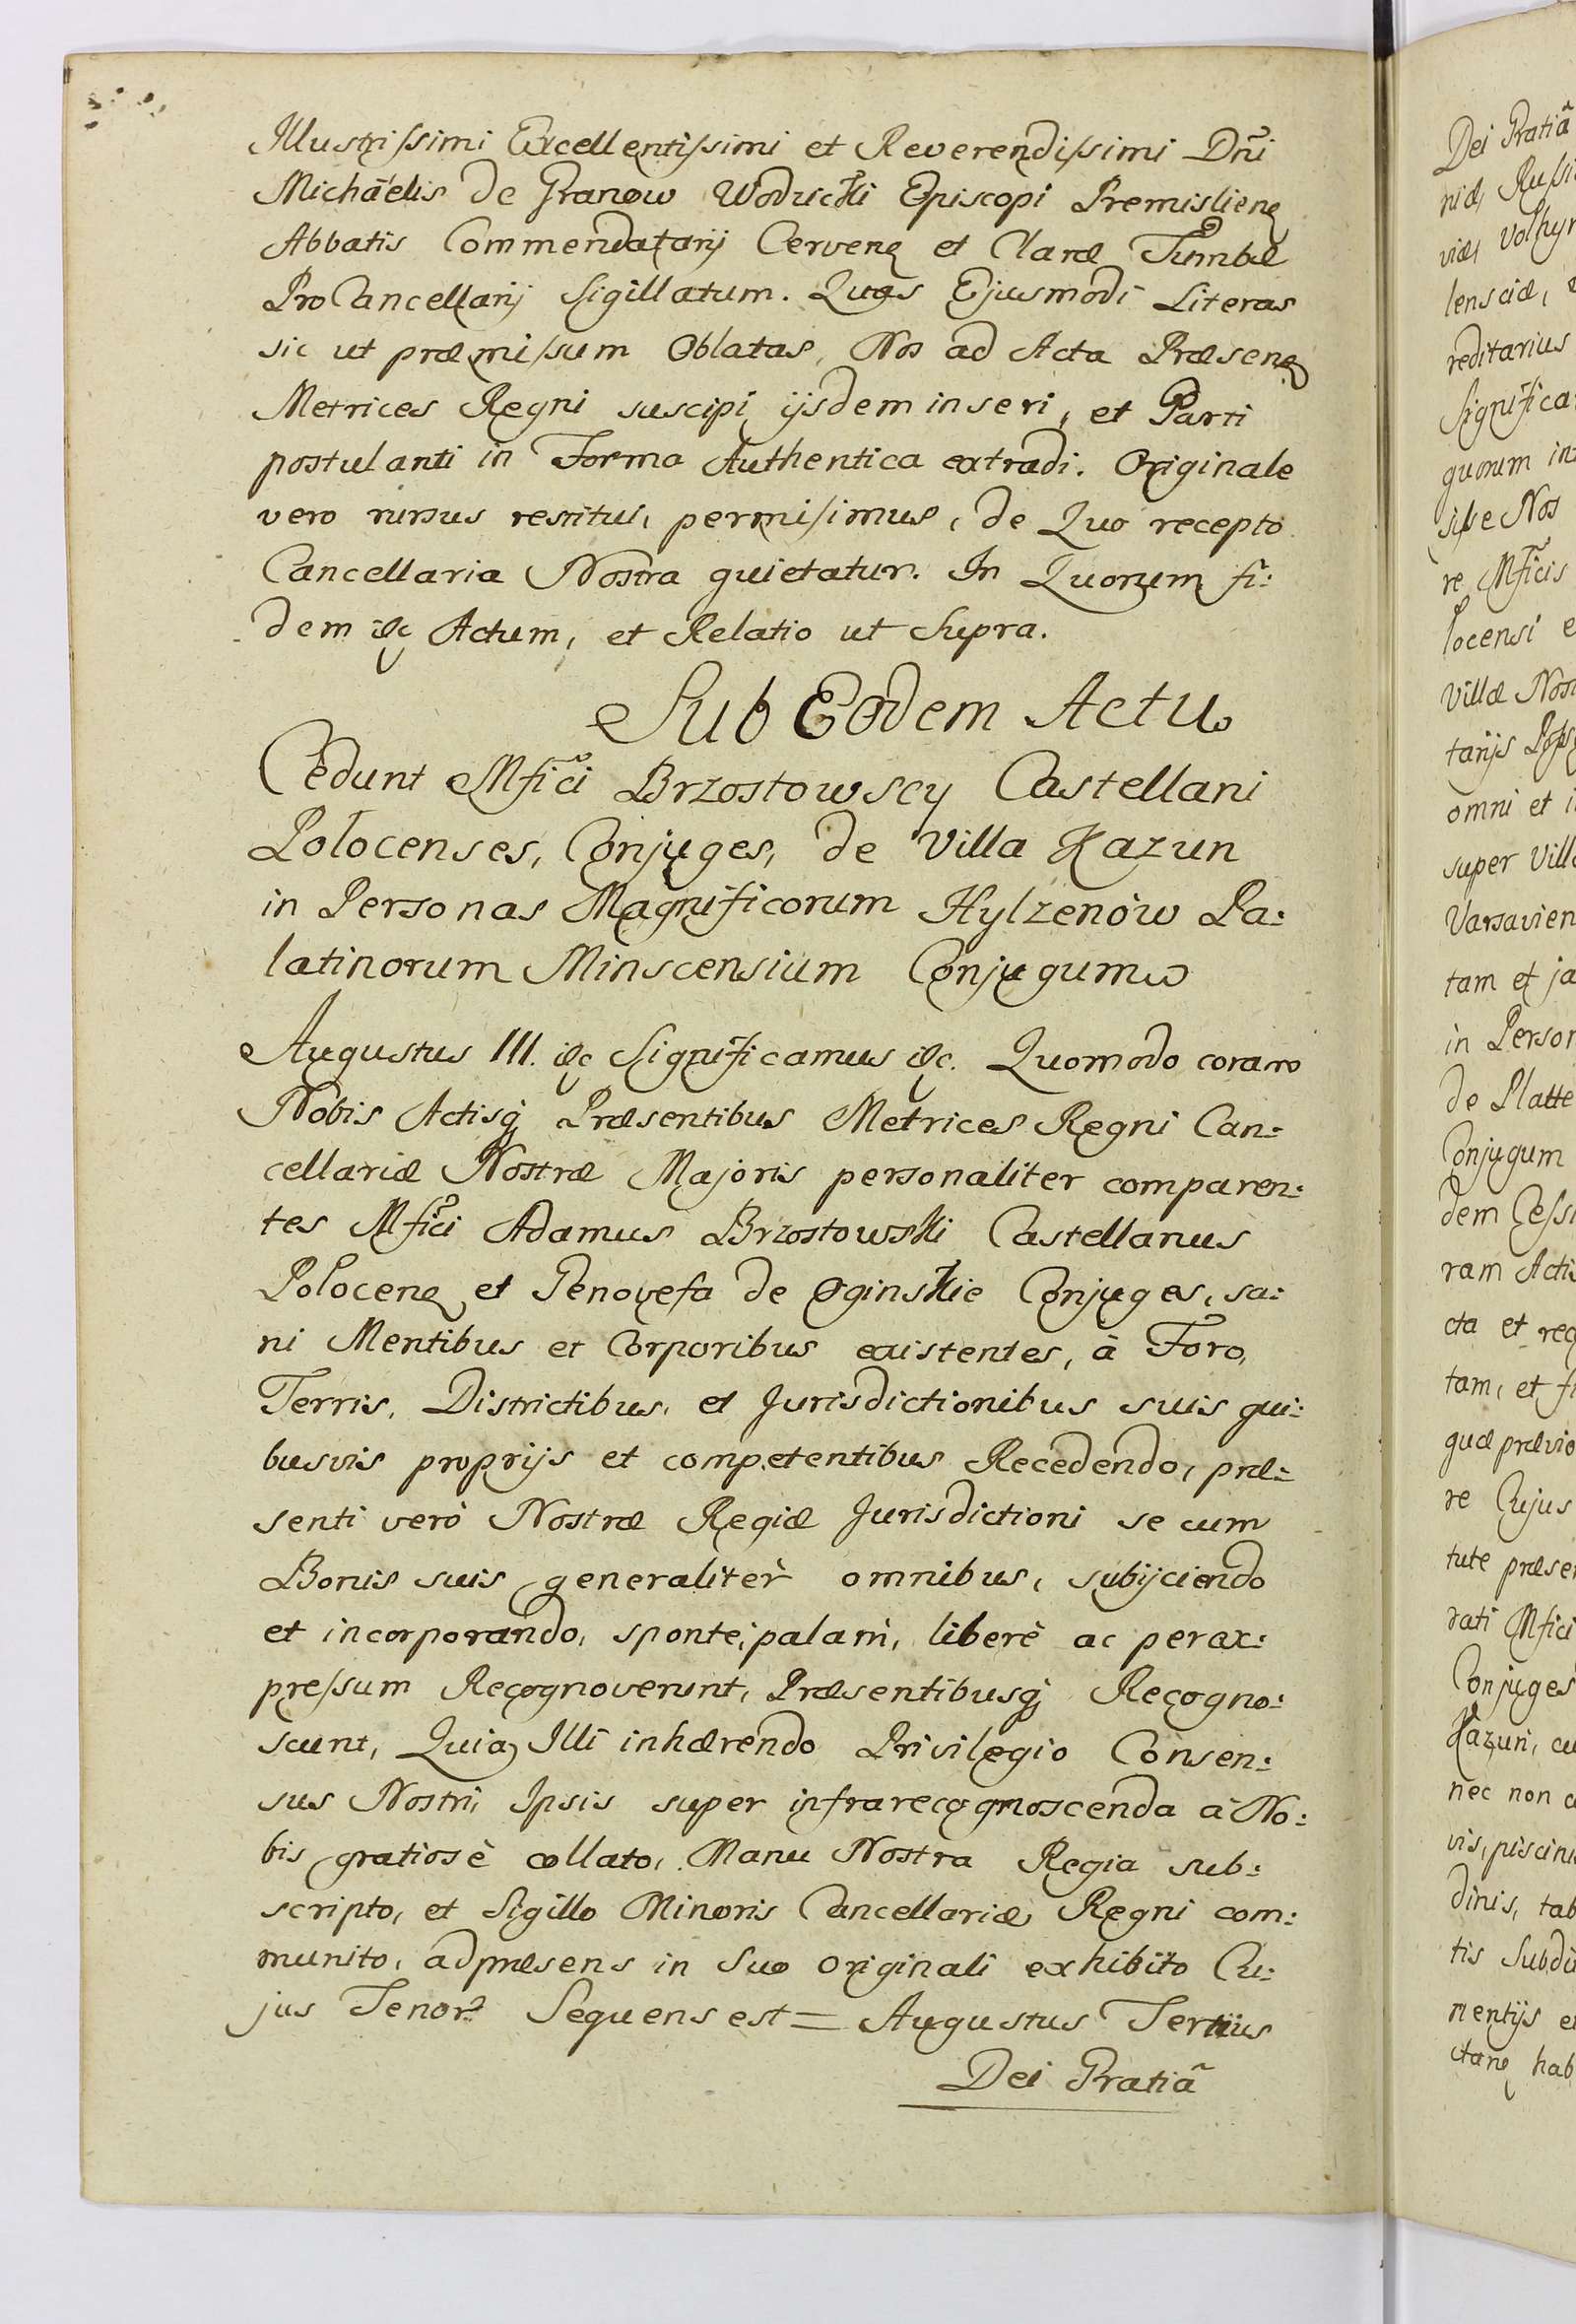 Illustrissimi Excellentissimi et Reverendissimi Dñi
Michaelis de Granow Wodzicki Episcopi Premislieng
Abbatis Commendatarij Cerveng et Claræ Tumbæ
ProCancellarij Sigillatum. Quas Ejusmodi Literas
sic ut præmissum Oblatas, Nos ad Acta Præseng
Metrices Regni suscipi ijsdem inseri, et Parti
postulanti in Forma Authentica extradi. Originale
vero rursus restitui, permisimus, de Quo recepto
Cancellaria Nostra quietatur. In Quorum fi:
dem &c Actum, et Relatio ut Supra.
Sub Eodem Actu
Cedunt Mfici Brzostowscy Castellani
Polocenses, Conjuges, de Villa Kazun
in Personas Magnificorum Hylzenòw Pa:
latinorum Minscensium Conjugum
Augustus III. &c Significamus &c. Quomodo coram
Nobis Actisq Præsentibus Metrices Regni Can:
cellariæ Nostræ Majoris personaliter comparen:
tes Mfici Adamus Brzostowski Castellanus
Poloceng et Genovefa de Oginskie Conjuges, sa:
ni Mentibus et Corporibus existentes, à Foro,
Terris, Districtibus, et Jurisdictionibus suis qui:
busvis proprijs et competentibus Recedendo, præ:
senti verò Nostræ Regiæ Jurisdictioni se cum
Bonis suis generalitèr omnibus, subijciendo
et incorporando, sponte, palam, liberè ac per ex:
pressum Recognoverunt, Præsentibusq Recogno:
scunt, Quia Illi inhærendo Privilegio Consen:
sus Nostri, Ipsis super infrarecognoscenda à No:
bis gratiosè collato, Manu Nostra Regia sub:
scripto, et Sigillo Minoris Cancellariæ Regni com:
munito, ad præsens in Suo Originali exhibito Cu:
jus Tenor Sequens est = Augustus Tertius
Dei Gratiã
Dei Gratiã
niæ, Russi
viæ, Volhyn
lensciæ,
reditarius
Significa
quorum in
sise Nos
re Mficis
locensi e
Villæ Nos
tarijs
omni et i
super Vill
Varsavien
tam et ja
in Person
de Platte
Conjugum
dem Cessi
ram Actis
cta et rec
tam, et f
quæ prævio
re Cujus
tute præse
rati Mfici
Conjuges
Kazun, cu
nec non
vis, piscini
dinis, tab
tis Subdi
mentijs e
hab